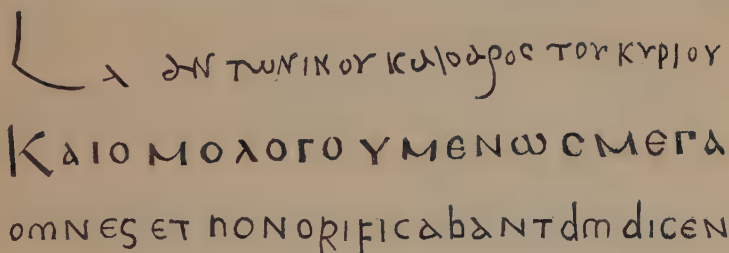 L λ αντωνινου καισαρος του κυριου
Και ομολογουμενως μεγα
omnes et honorificabant dm dicen